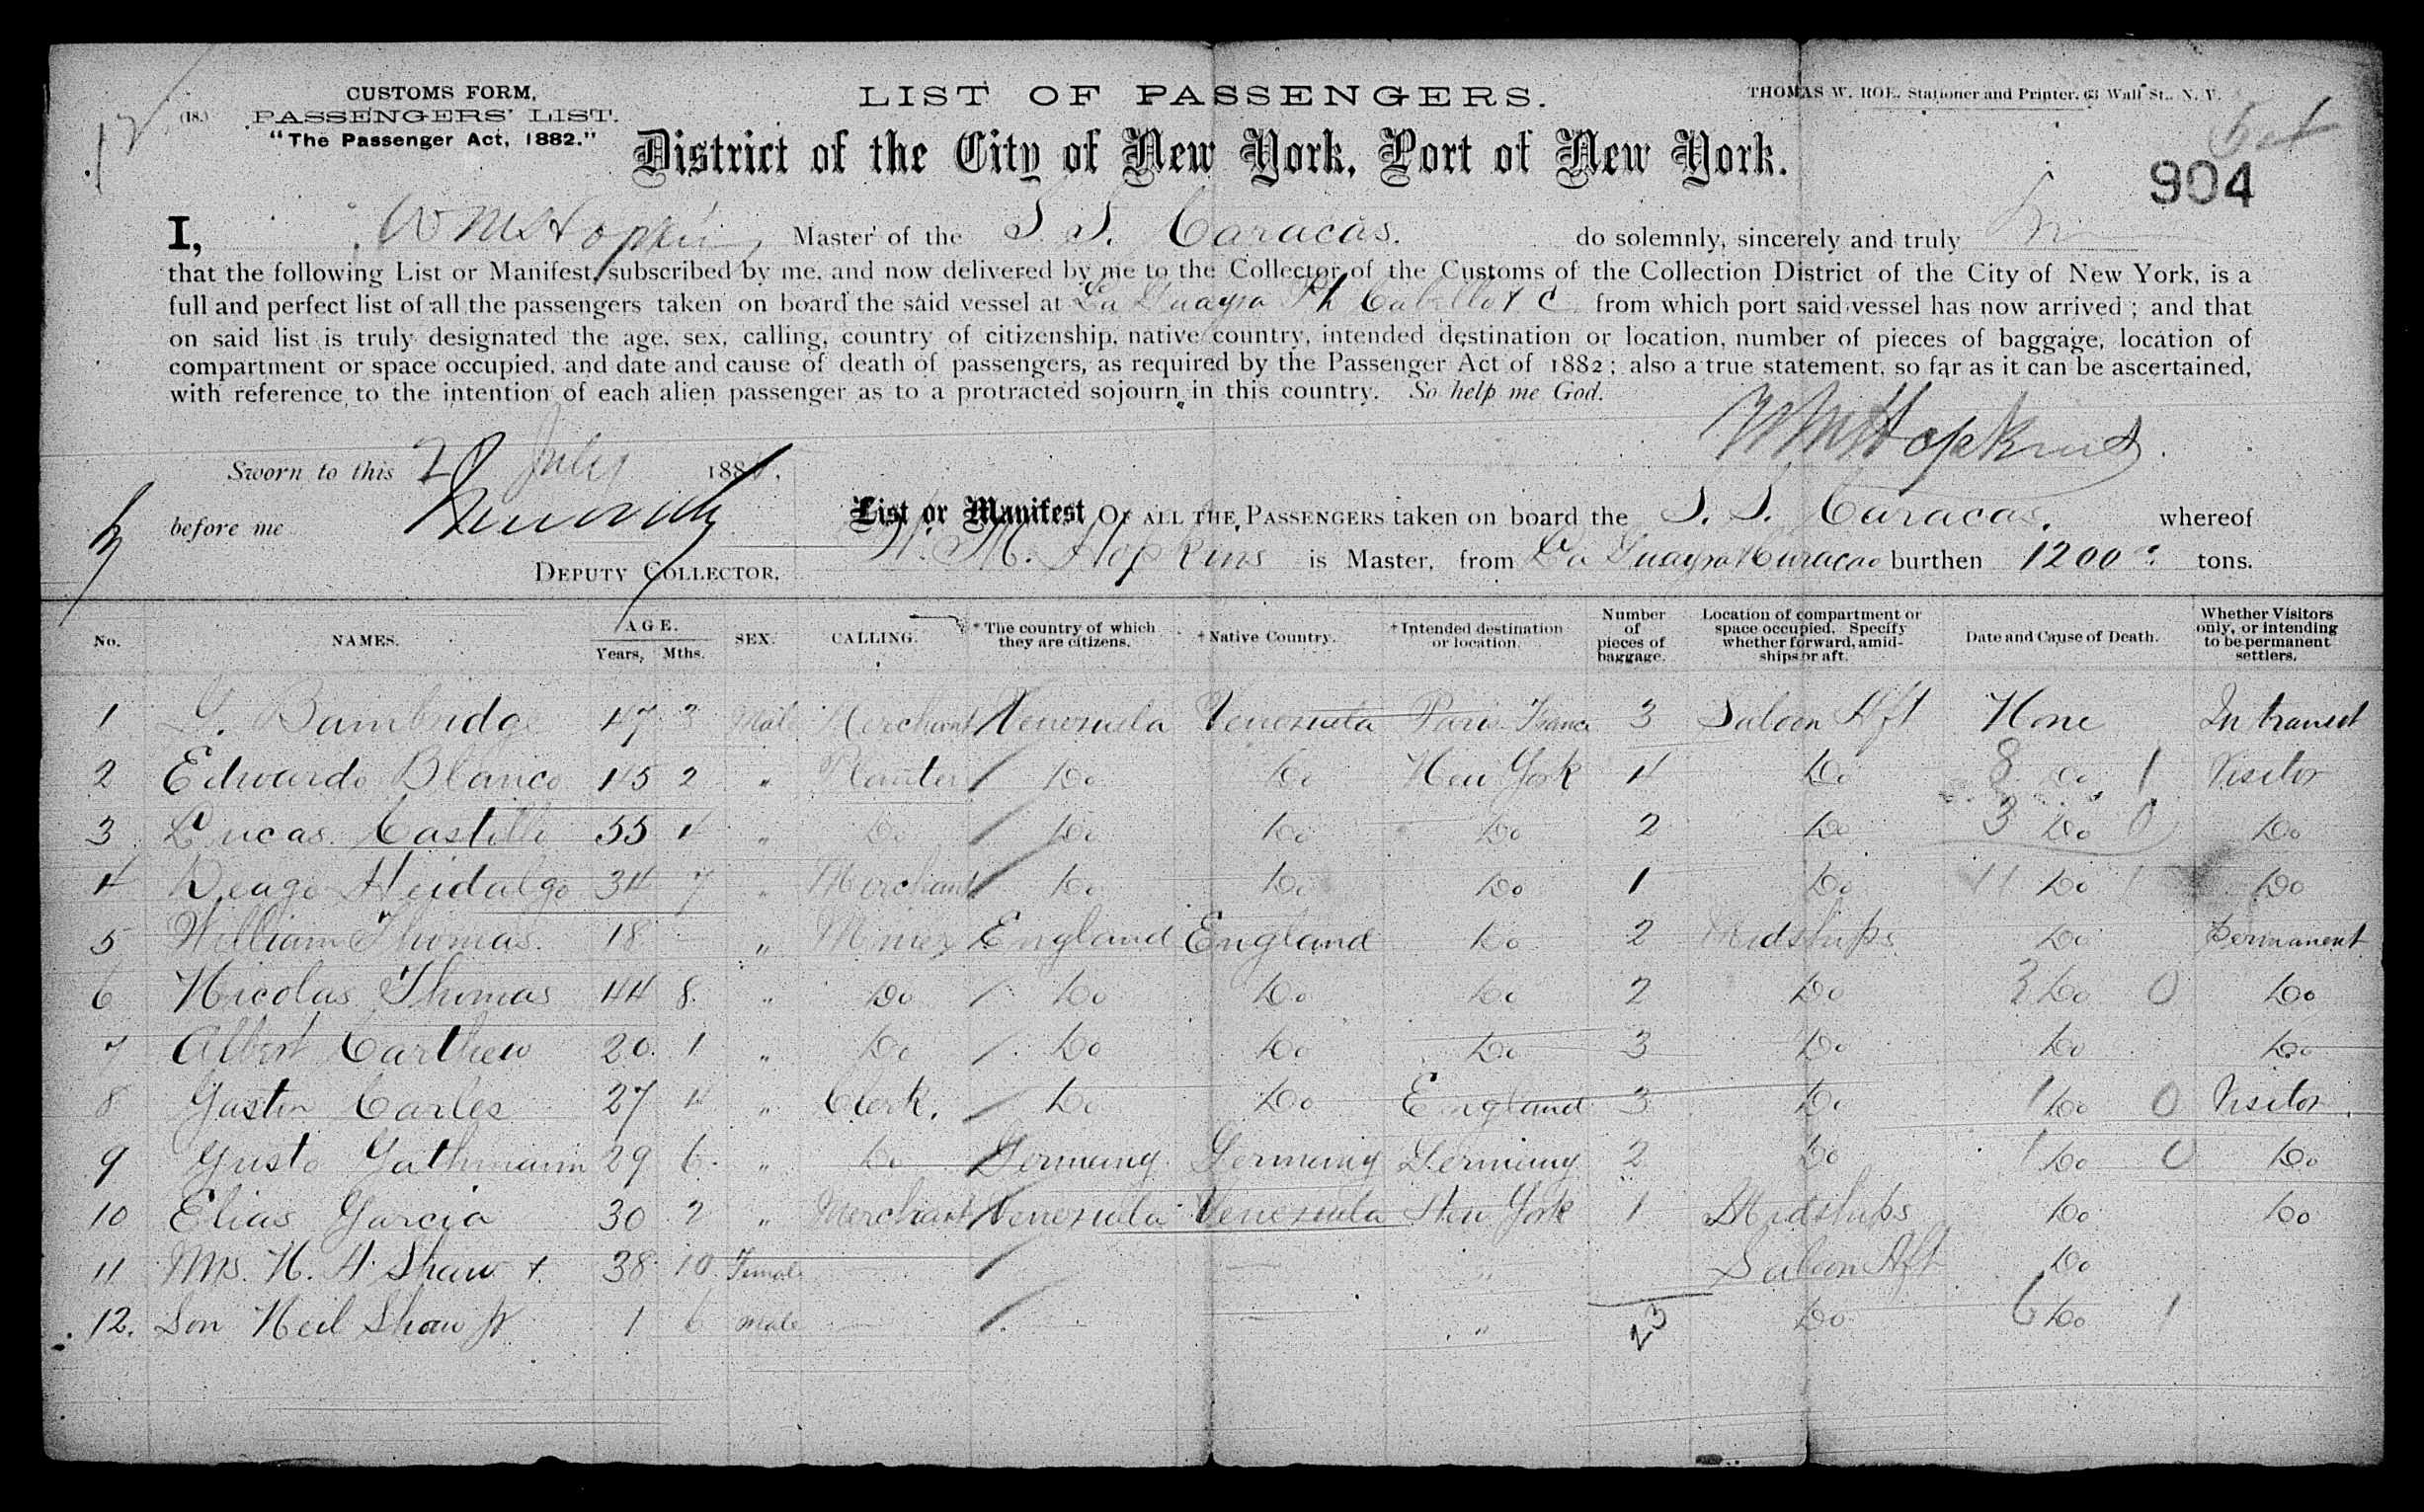 CUSTOMS FORM,
(18.) PASSENGERS' LIST.
"The Passenger Act, 1882."
LIST OF PASSENGERS.
THOMAS W. ROE, Stationer and Printer, 63 Wall St., N. Y.
District of the City of New York, Port of New York.
904
I, W M Hopkins, Master of the S. S. Caracas. do solemnly, sincerely and truly
that the following List or Manifest, subscribed by me, and now delivered by me to the Collector of the Customs of the Collection District of the City of New York, is a
full and perfect list of all the passengers taken on board the said vessel at La Guayra Cabello & C from which port said vessel has now arrived; and that
on said list is truly designated the age, sex, calling, country of citizenship, native country, intended destination or location, number of pieces of baggage, location of
compartment or space occupied, and date and cause of death of passengers, as required by the Passenger Act of 1882; also a true statement, so far as it can be ascertained,
with reference to the intention of each alien passenger as to a protracted sojourn in this country. So help me God.
W M Hopkins
Sworn to this 20 July 188
before me
DEPUTY COLLECTOR.
List or Manifest OF ALL THE PASSENGERS taken on board the S. S. Caracas. whereof
W. M. Hopkins is Master, from La Guayra & Curacao burthen 1200 tons.
No. NAMES. AGE. Years, Mths. SEX. CALLING. *The country of which they are citizens. †Native Country. †Intended destination or location. Number of pieces of baggage. Location of compartment or space occupied. Specify whether forward, amidships or aft. Date and Cause of Death. Whether Visitors only, or intending to be permanent settlers.
1 Bambridge 47 3 Male Merchant Venezuela Venezuela Paris France 3 Saloon Aft None In transit
2 Edwardo Blanco 45 2 " Planter Do Do New York 4 Do Do Visitor
3 Lucas Castillo 55 4 " Do Do Do Do 2 Do Do Do
4 Deago Heidalgo 34 7 " Merchant Do Do Do 1 Do Do Do
5 William Thomas 18 - " Miner England England Do 2 Midships Do Permanent
6 Nicolas Thomas 44 8 " Do Do Do Do 2 Do Do Do
7 Albert Carthew 20 1 " Do Do Do Do 3 Do Do Do
8 Gaston Carles 27 4 " Clerk. Do Do England 3 Do Do Visitor.
9 Gusto Gathmann 29 6 " Do Germany Germany Germany 2 Do Do Do
10 Elias Garcia 30 2 " Merchant Venezuela Venezuela New York 1 Midships Do Do
11 Mrs. N. A. Shaw + 38 10 Female " Saloon Aft Do
12. Son Neil Shaw Jr 1 6 Male " Do Do
23